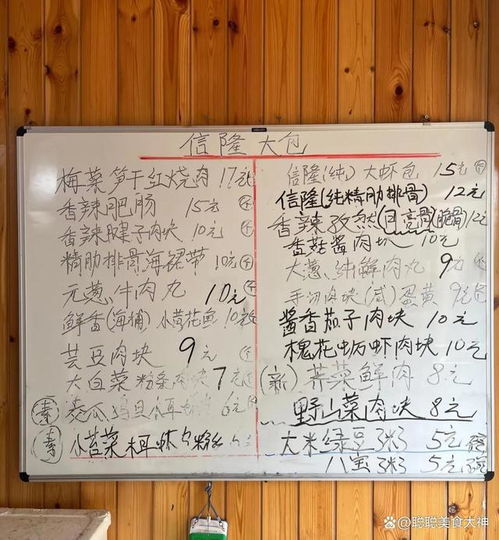 信隆大包
梅菜笋干红烧肉 17元
香辣肥肠 15元
香辣腱子肉块 10元
精肋排骨海裙带 10元
元葱牛肉丸 10元
鲜香(海捕)小黄花鱼 10元
芸豆肉块 9元
大白菜粉条肉块 7元
(素)
(素) 小苔菜木耳虾 粉
信隆(纯)大虾包 15元
信隆(纯精肋排骨) 12元
香辣孜然(月亮骨)(脆骨)12元
香菇酱肉块 10元
大葱纯鲜肉丸 9元
手切肉块(咸)蛋黄 9元
酱香茄子肉块 10元
槐花虾肉块 10元
(新) 荠菜鲜肉 8元
野山菜肉块 8元
大米绿豆粥 5元
八宝粥 5元
@聪聪美食大神